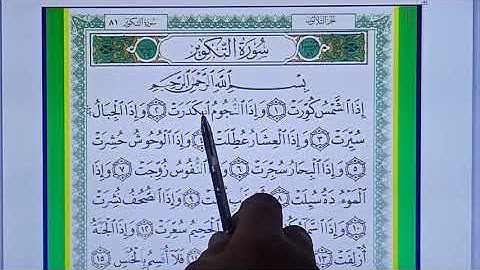 الجزء الثلاثون
سورة التكوير ٨١
سُورَةُ التَّكْوِيرِ
بِسْمِ اللَّهِ الرَّحْمَٰنِ الرَّحِيمِ
إِذَا الشَّمْسُ كُوِّرَتْ ١ وَإِذَا النُّجُومُ انكَدَرَتْ ٢ وَإِذَا الْجِبَالُ
سُيِّرَتْ ٣ وَإِذَا الْعِشَارُ عُطِّلَتْ ٤ وَإِذَا الْوُحُوشُ حُشِرَتْ
٥ وَإِذَا الْبِحَارُ سُجِّرَتْ ٦ وَإِذَا النُّفُوسُ زُوِّجَتْ ٧ وَإِذَا
الْمَوْءُۥدَةُ سُئِلَتْ ٨ قُتِلَتْ ٩ وَإِذَا الصُّحُفُ نُشِرَتْ
١٠ وَإِذَا السَّمَاءُ الْجَحِيمُ سُعِّرَتْ ١٢ وَإِذَا الْجَنَّةُ
أُزْلِفَتْ ١٣ فَلَا أُقْسِمُ بِالْخُنَّسِ ١٥